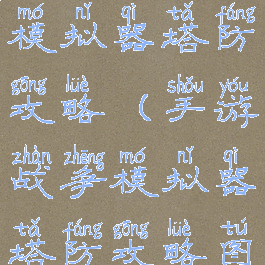 mó nǐ qì tǎ fáng
模拟器塔防
gōng lüè shǒu yóu
攻略(手游
zhàn zhēng mó nǐ qì
战争模拟器
tǎ fáng gōng lüè tú
塔防攻略图